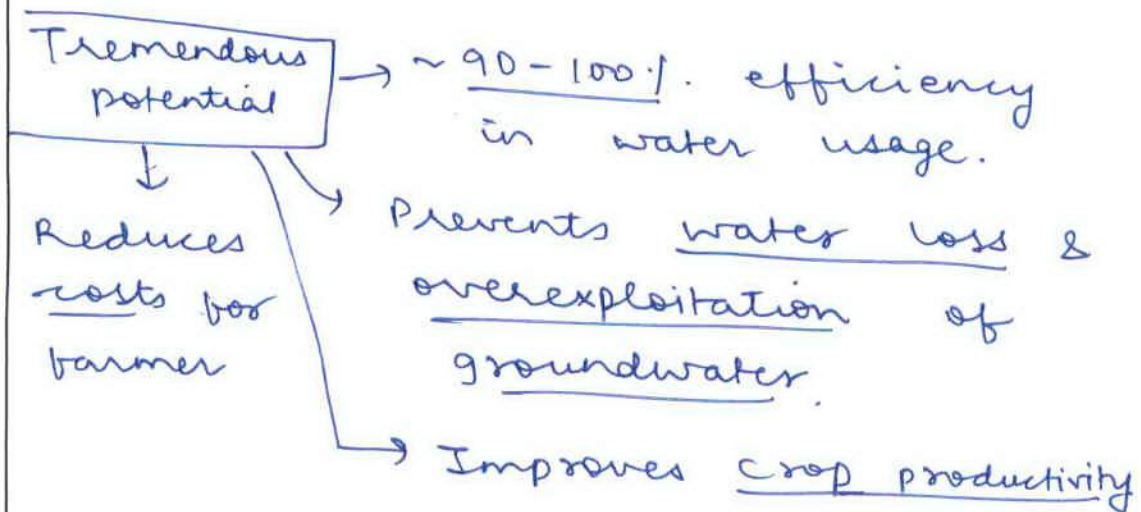 Tremendous
potential
~ 90-100%. efficiency
in water usage.
Reduces
costs for
farmer
Prevents water loss &
overexploitation of
groundwater.
Improves crop productivity